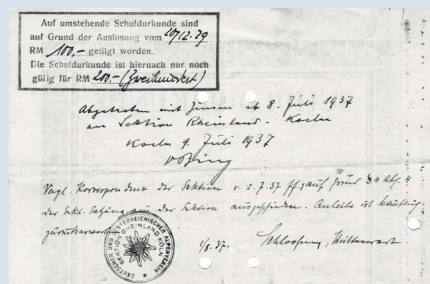 Auf umstehende Schuldurkunde sind
auf Grund der Auslosung vom 20/12.29
RM 100.- getilgt worden.
Die Schuldurkunde ist hiernach nur noch
gültig für RM 200.- (Zweihundert)
Abgetreten mit Zinsen ab 8. Juli 1937
an Sektion Rheinland - Koeln
Koeln 9. Juli 1937
Vergl. Korrespondent der Sektion v. 2.7.37 auf Grund § 4 Abs. 4
der Sekt. Satzung aus der Sektion ausgeschieden. Anleihe ist
DEUTSCHER UND ÖSTERREICHISCHER ALPENVEREIN
SEKTION RHEINLAND KÖLN
1/8.37. Hüttenwart